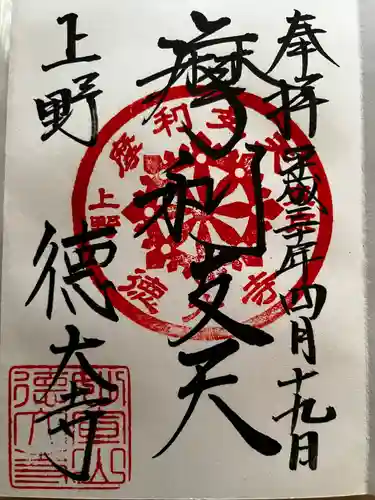 奉拝 平成三十年四月十九日
摩利支天
上野 徳大寺
摩利支天
上野
徳大寺